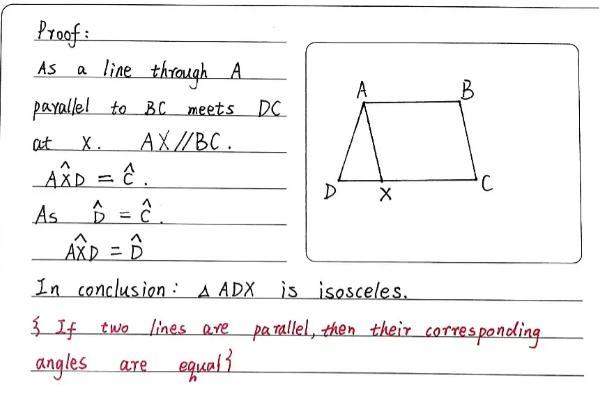 Proof:
As a line through A
parallel to BC meets DC
at X. AX//BC.
AX̂D = Ĉ.
As D̂ = Ĉ.
AX̂D = D̂
In conclusion: △ ADX is isosceles.
{ If two lines are parallel, then their corresponding
angles are equal}
A
B
D
X
C